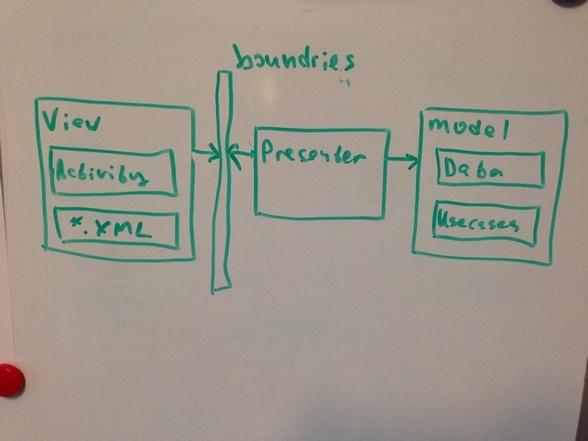 boundries
View
Activity
*.XML
Presenter
model
Data
Usecases